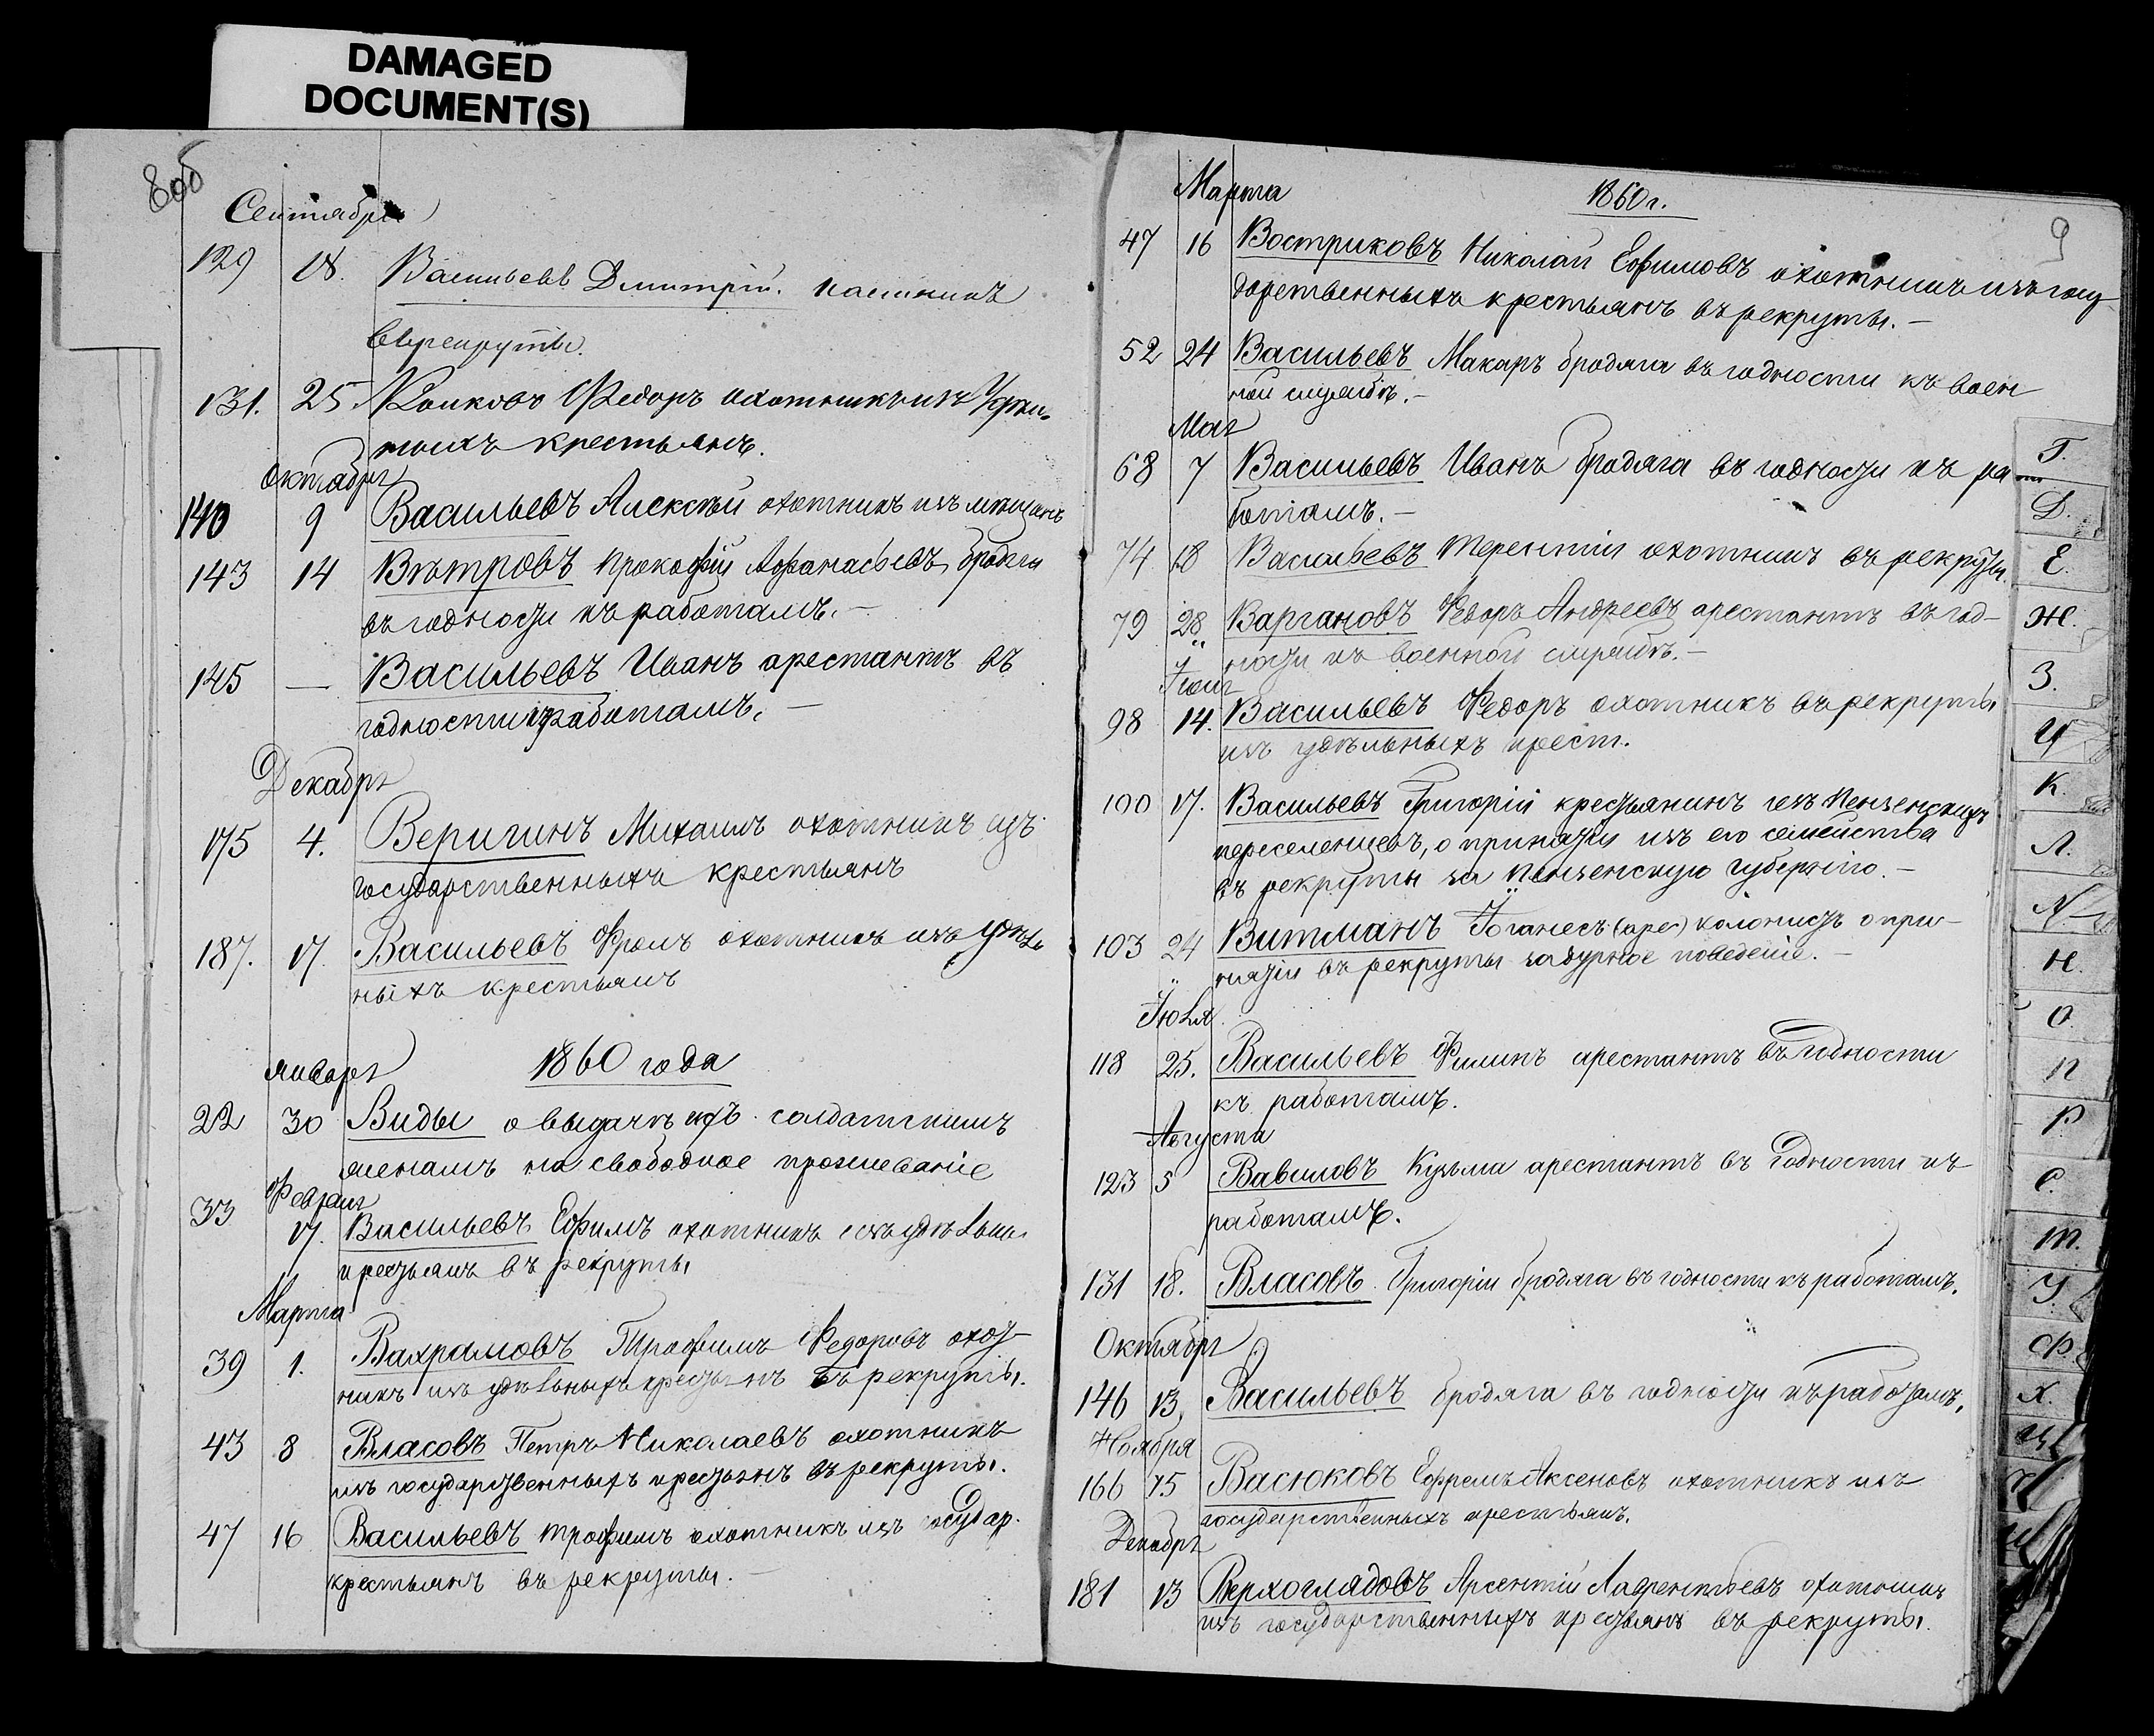 DAMAGED
DOCUMENT(S)
8об
Сентября
129 18. Васильевъ Дмитрій. наемникъ
в рекруты.
131. 25. Волковъ Федоръ охотникъ изъ
крестьянъ.
Октября
140 9 Васильевъ Алексѣй охотникъ изъ мѣщанъ
143 14 Вѣтровъ Прокофій Афанасьевъ бродяга
въ годности къ работамъ.—
145 — Васильевъ Иванъ арестантъ въ
годности къ работамъ. —
Декабря
175 4. Веригинъ Михаилъ охотникъ изъ
государственныхъ крестьянъ
187. 17 Васильевъ Фролъ охотникъ изъ удѣль
ныхъ крестьянъ
Января 1860 года
22 30 Виды о выдачѣ ихъ солдатскимъ
женамъ на свободное проживаніе
Февраля
33 17. Васильевъ Ефимъ охотникъ изъ удѣльн.
крестьянъ въ рекруты
Марта
39 1. Вахрамовъ Трофимъ Федоровъ охот-
никъ изъ удѣльныхъ крестьянъ въ рекруты.
43 8 Власовъ Петръ Николаевъ охотникъ
изъ государственныхъ крестьянъ въ рекруты.
47 16 Васильевъ Трофимъ охотникъ изъ государ.
крестьянъ въ рекруты. —
Марта 1860 г.
9
47 16 Востриковъ Николай Ефимовъ охотникъ изъ госу
дарственныхъ крестьянъ въ рекруты.—
52 24 Васильевъ Макаръ бродяга въ годности къ воен
ной службѣ.—
Мая
68 7 Васильевъ Иванъ бродяга въ годности къ ра
ботамъ.—
74 18 Васильевъ Терентій охотникъ въ рекруты.
79 28 Вагановъ Федоръ Андреевъ арестантъ въ год-
ности къ военной службѣ.—
Іюня
98 14. Васильевъ Федоръ охотникъ въ рекруты
изъ удѣльныхъ крест.
100 17. Васильевъ Григорій крестьянинъ изъ Пензенскихъ
переселенцевъ, о принятіи изъ его семейства
въ рекруты за Пензенскую губернію.—
103 24 Витманъ Іоганесъ (арес) колонистъ о при-
нятіи въ рекруты за дурное поведеніе.—
Іюля
118 25. Васильевъ Филипъ арестантъ въ годности
къ работамъ.
Августа
123 5 Вавиловъ Кузьма арестантъ въ годности къ
работамъ.
131 18. Власовъ Григорій бродяга въ годности къ работамъ.
Октября
146 13, Васильевъ бродяга въ годности къ работамъ.
Ноября
166 15 Васюковъ Ефремъ Аксеновъ охотникъ изъ
государственныхъ крестьянъ.
Декабря
181 13 Верхоглядовъ Арсентій Лаврентьевъ охотникъ
изъ государственныхъ крестьянъ въ рекруты.
Г.
Д.
Е.
Ж.
З.
И
К.
Л.
М
Н.
О.
П
Р
С.
Т.
У.
Ф.
Х.
Ц
Ч